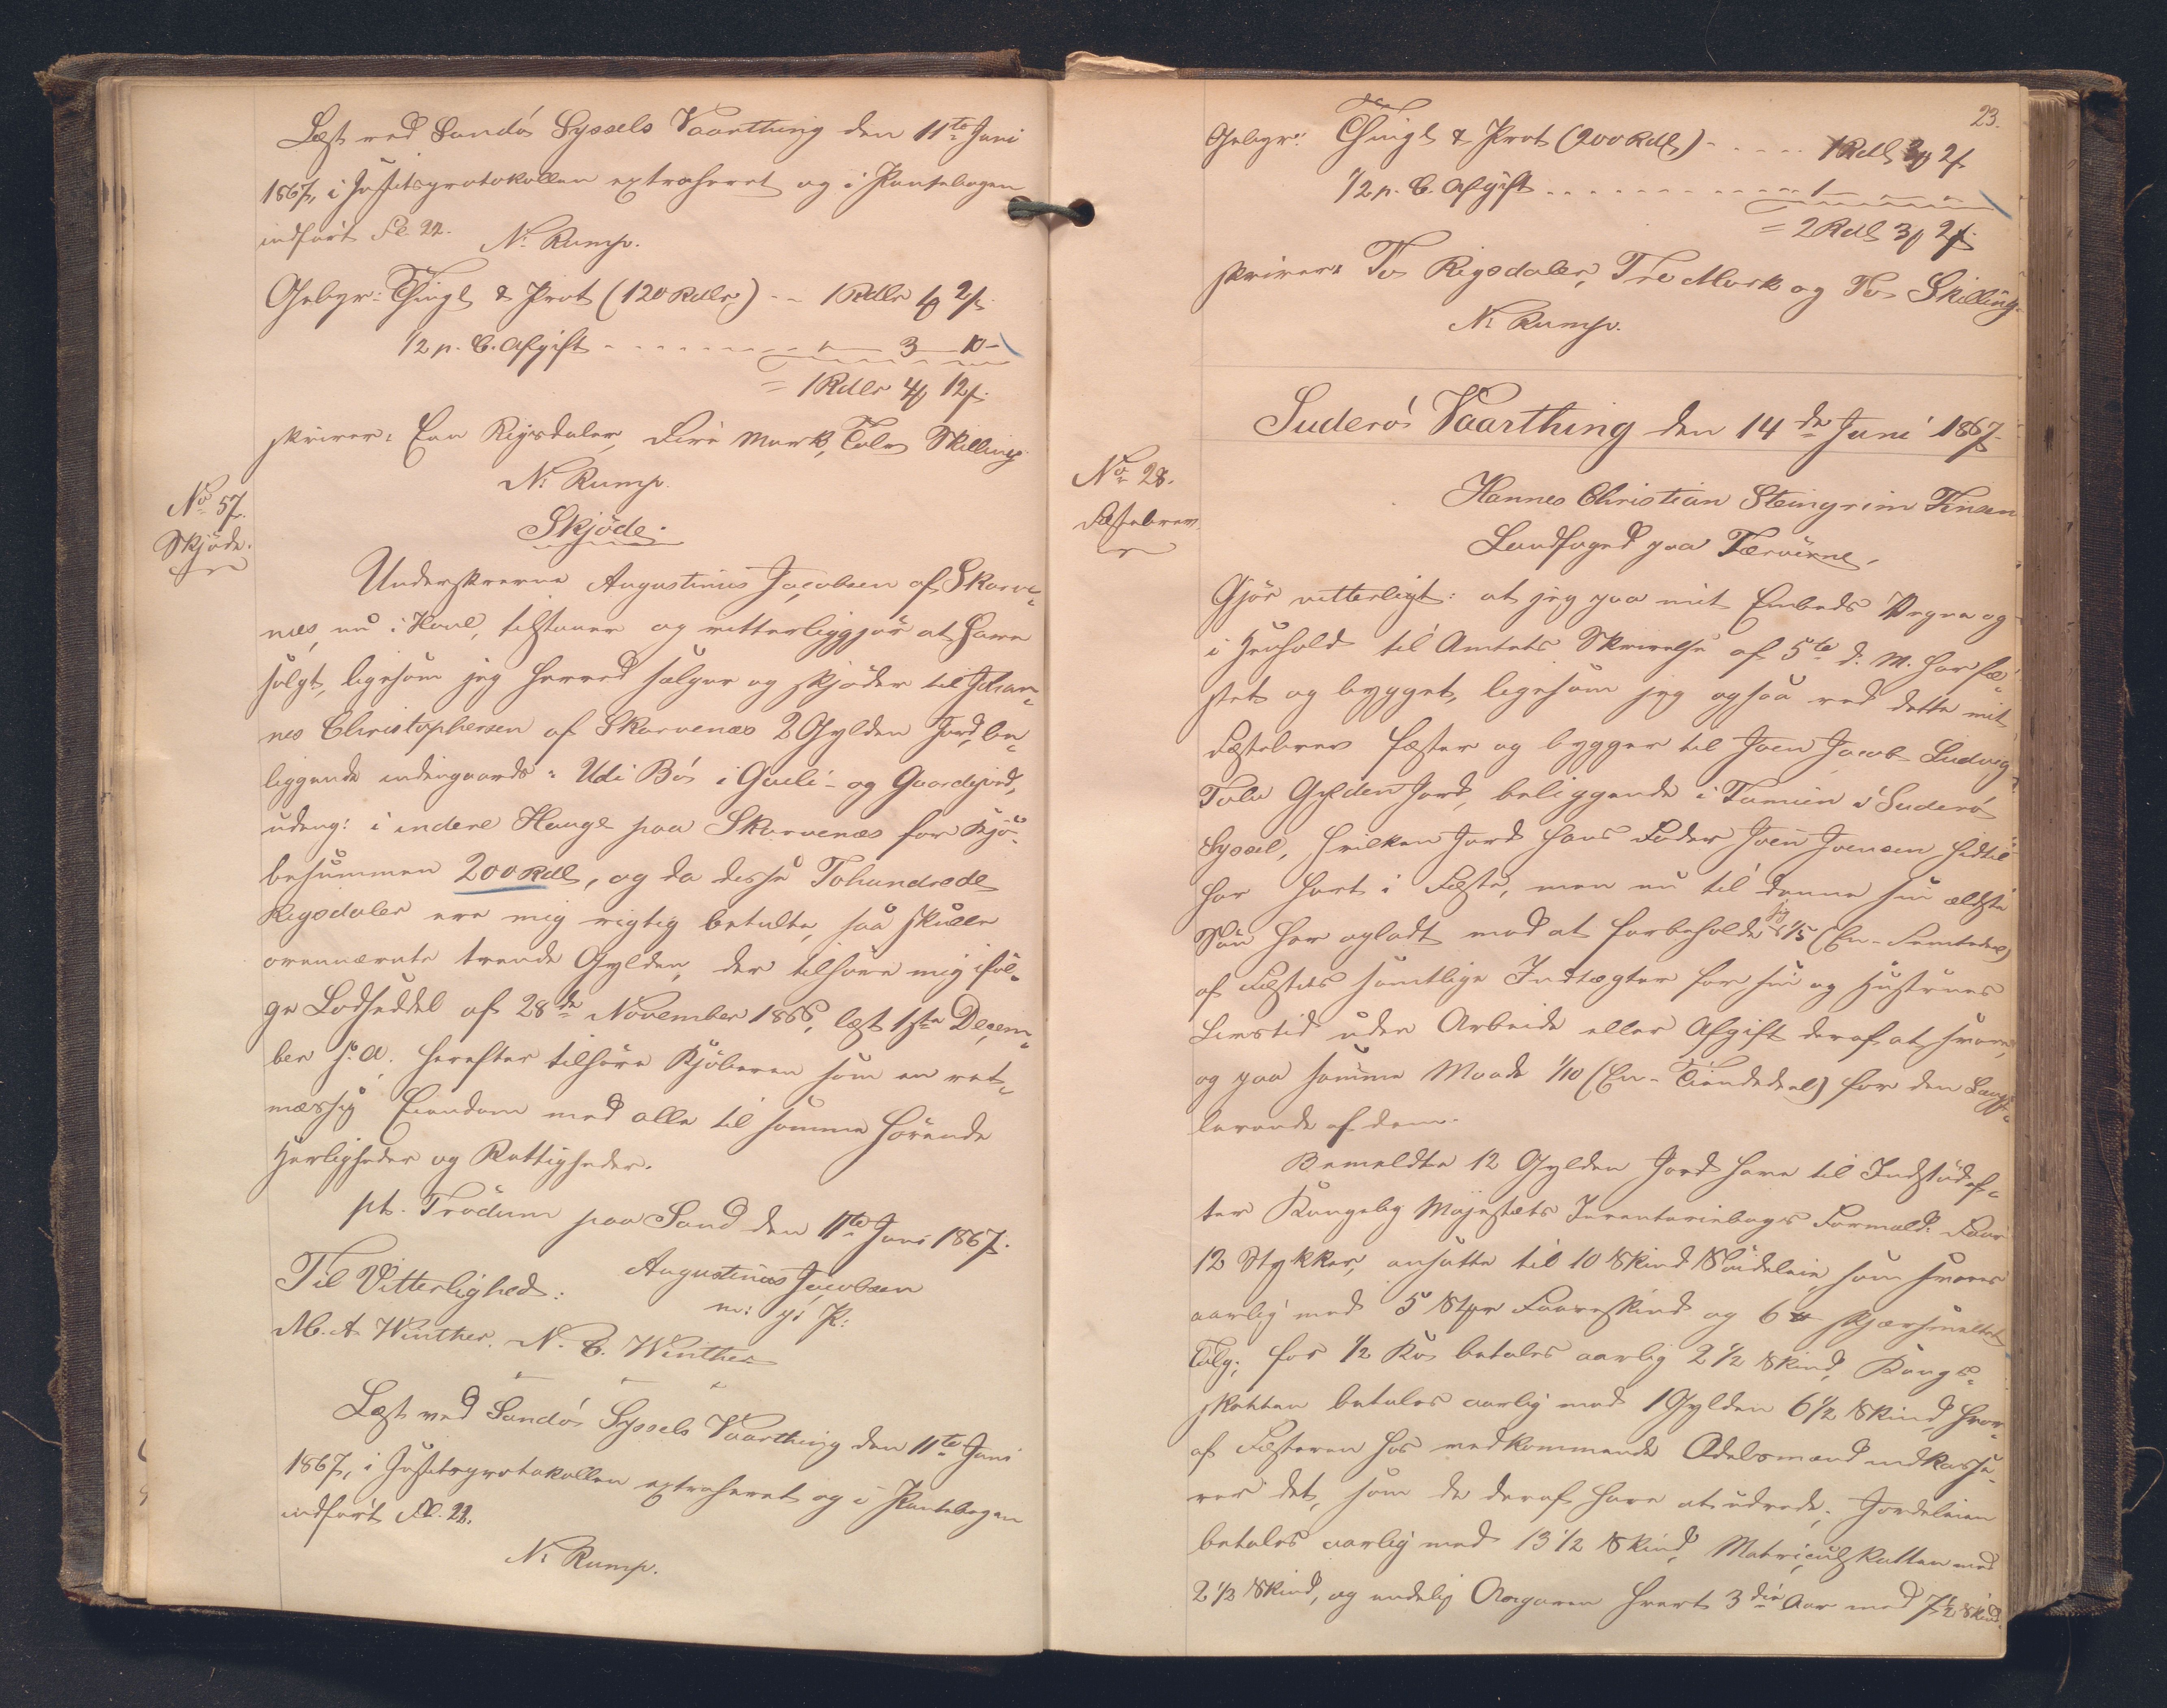 Læst ved Sandø Syssels Vaarthing den 11te Juni
1867, i Justitsprotokollen extraheret og i Pantebogen
indført Fl. 22.
N. Rump.
Gebyr: Thingl & Prot (120 Rdlr) - - 1 Rdlr 1 ℳ 2 ß.
1/2 p. C. Afgift - - - - - - - - 3 - 10 -
= 1 Rdlr 4 ℳ 12 ß.
skriver: Een Rigsdaler, Fire Mark, Tolv Skilling.
N. Rump.
No 57.
Skjøde.
Skjøde.
Underskrevne Augustinus Jacobsen af Skarve-
næs, nu i Hvul, tilstaaer og vitterliggjør at have
solgt, ligesom jeg herved sælger og skjøder til Johan-
nes Christophersen af Skarvenæs 2 Gylden Jord, be-
liggende indengaards: Udi Bø, i Giuli- og Gaardejord,
udeng: i indere Hauge paa Skarvenæs for Kjø-
besummen 200 Rdl, og da disse Tohundrede
Rigsdaler ere mig rigtig betalte, saa skulle
ovennævnte tvende Gylden, der tilhøre mig iføl-
ge Lodseddel af 28de November 1866, læst 1ste Decem-
ber s. A. herefter tilhøre Kjøberen som en ret-
mæssig Eiendom med alle til samme hørende
Herligheder og Rettigheder.
pt. Trødum paa Sand den 11te Juni 1867.
Augustinus Jacobsen
m: p: P:
Til Vitterlighed:
M. A Winther. N. C. Winther
Læst ved Sandø Syssels Vaarthing den 11te Juni
1867, i Justitsprotokollen extraheret og i Pantebogen
indført Fl. 22.
N. Rump.
23.
Gebyr: Thingl & Prot (200 Rdl) - - - - - 1 Rdl 3 ℳ 2 ß
1/2 p. C. Afgift - - - - - - - - 1 -
= 2 Rdl 3 ℳ 2 ß.
skriver: To Rigsdaler, Tre Mark og To Skilling.
N. Rump.
Suderø Vaarthing den 14de Juni 1867.
No 28.
Fæstebrev.
Hannes Christian Steingrim Finsen
Landfoged paa Færøerne,
Gjør vitterligt: at jeg paa mit Embeds Vegne og
i Henhold til Amtets Skrivelse af 5te d. M. har fæ-
stet og bygget, ligesom jeg ogsaa ved dette mit
Fæstebrev fæster og bygger til Joen Jacob Ludvig
Tolv Gylden Jord, beliggende i Famien i Suderø
Syssel, hvilken Jord hans Fader Joen Joensen hidtil
har havt i Fæste, men nu til denne sin ældste
Søn har afladt mod at forbeholde sig 1/5 (En-Femtedel)
af Fæstets samtlige Indtægter for sin og Hustrues
Livstid uden Arbeide eller Afgift deraf at svare,
og paa samme Maade 1/10 (En-Tiendedel) for den Længst-
levende af dem.
Bemeldte 12 Gylden Jord have til Indstød ef-
ter Kongelig Majestæts Inventariebogs Formeld: Faar
12 Stykker, ansatte til 10 Skind Søideleie, som svares
aarlig med 5 Stkr Faareskind og 6 ℔ skjærsmeltet
Talg; for 1/2 Ko betales aarlig 2 1/2 Skind, Kongs-
skatten betales aarlig med 1 Gylden 6 1/2 Skind, hvor-
af Fæsteren hos vedkommende Odelsmænd indkasse-
rer det, som de deraf have at udrede; Jordeleien
betales aarlig med 13 1/2 Skind, Matriculskatten med
2 1/2 Skind, og endelig Aargaven hvert 3die Aar med 7 1/2 Skind.